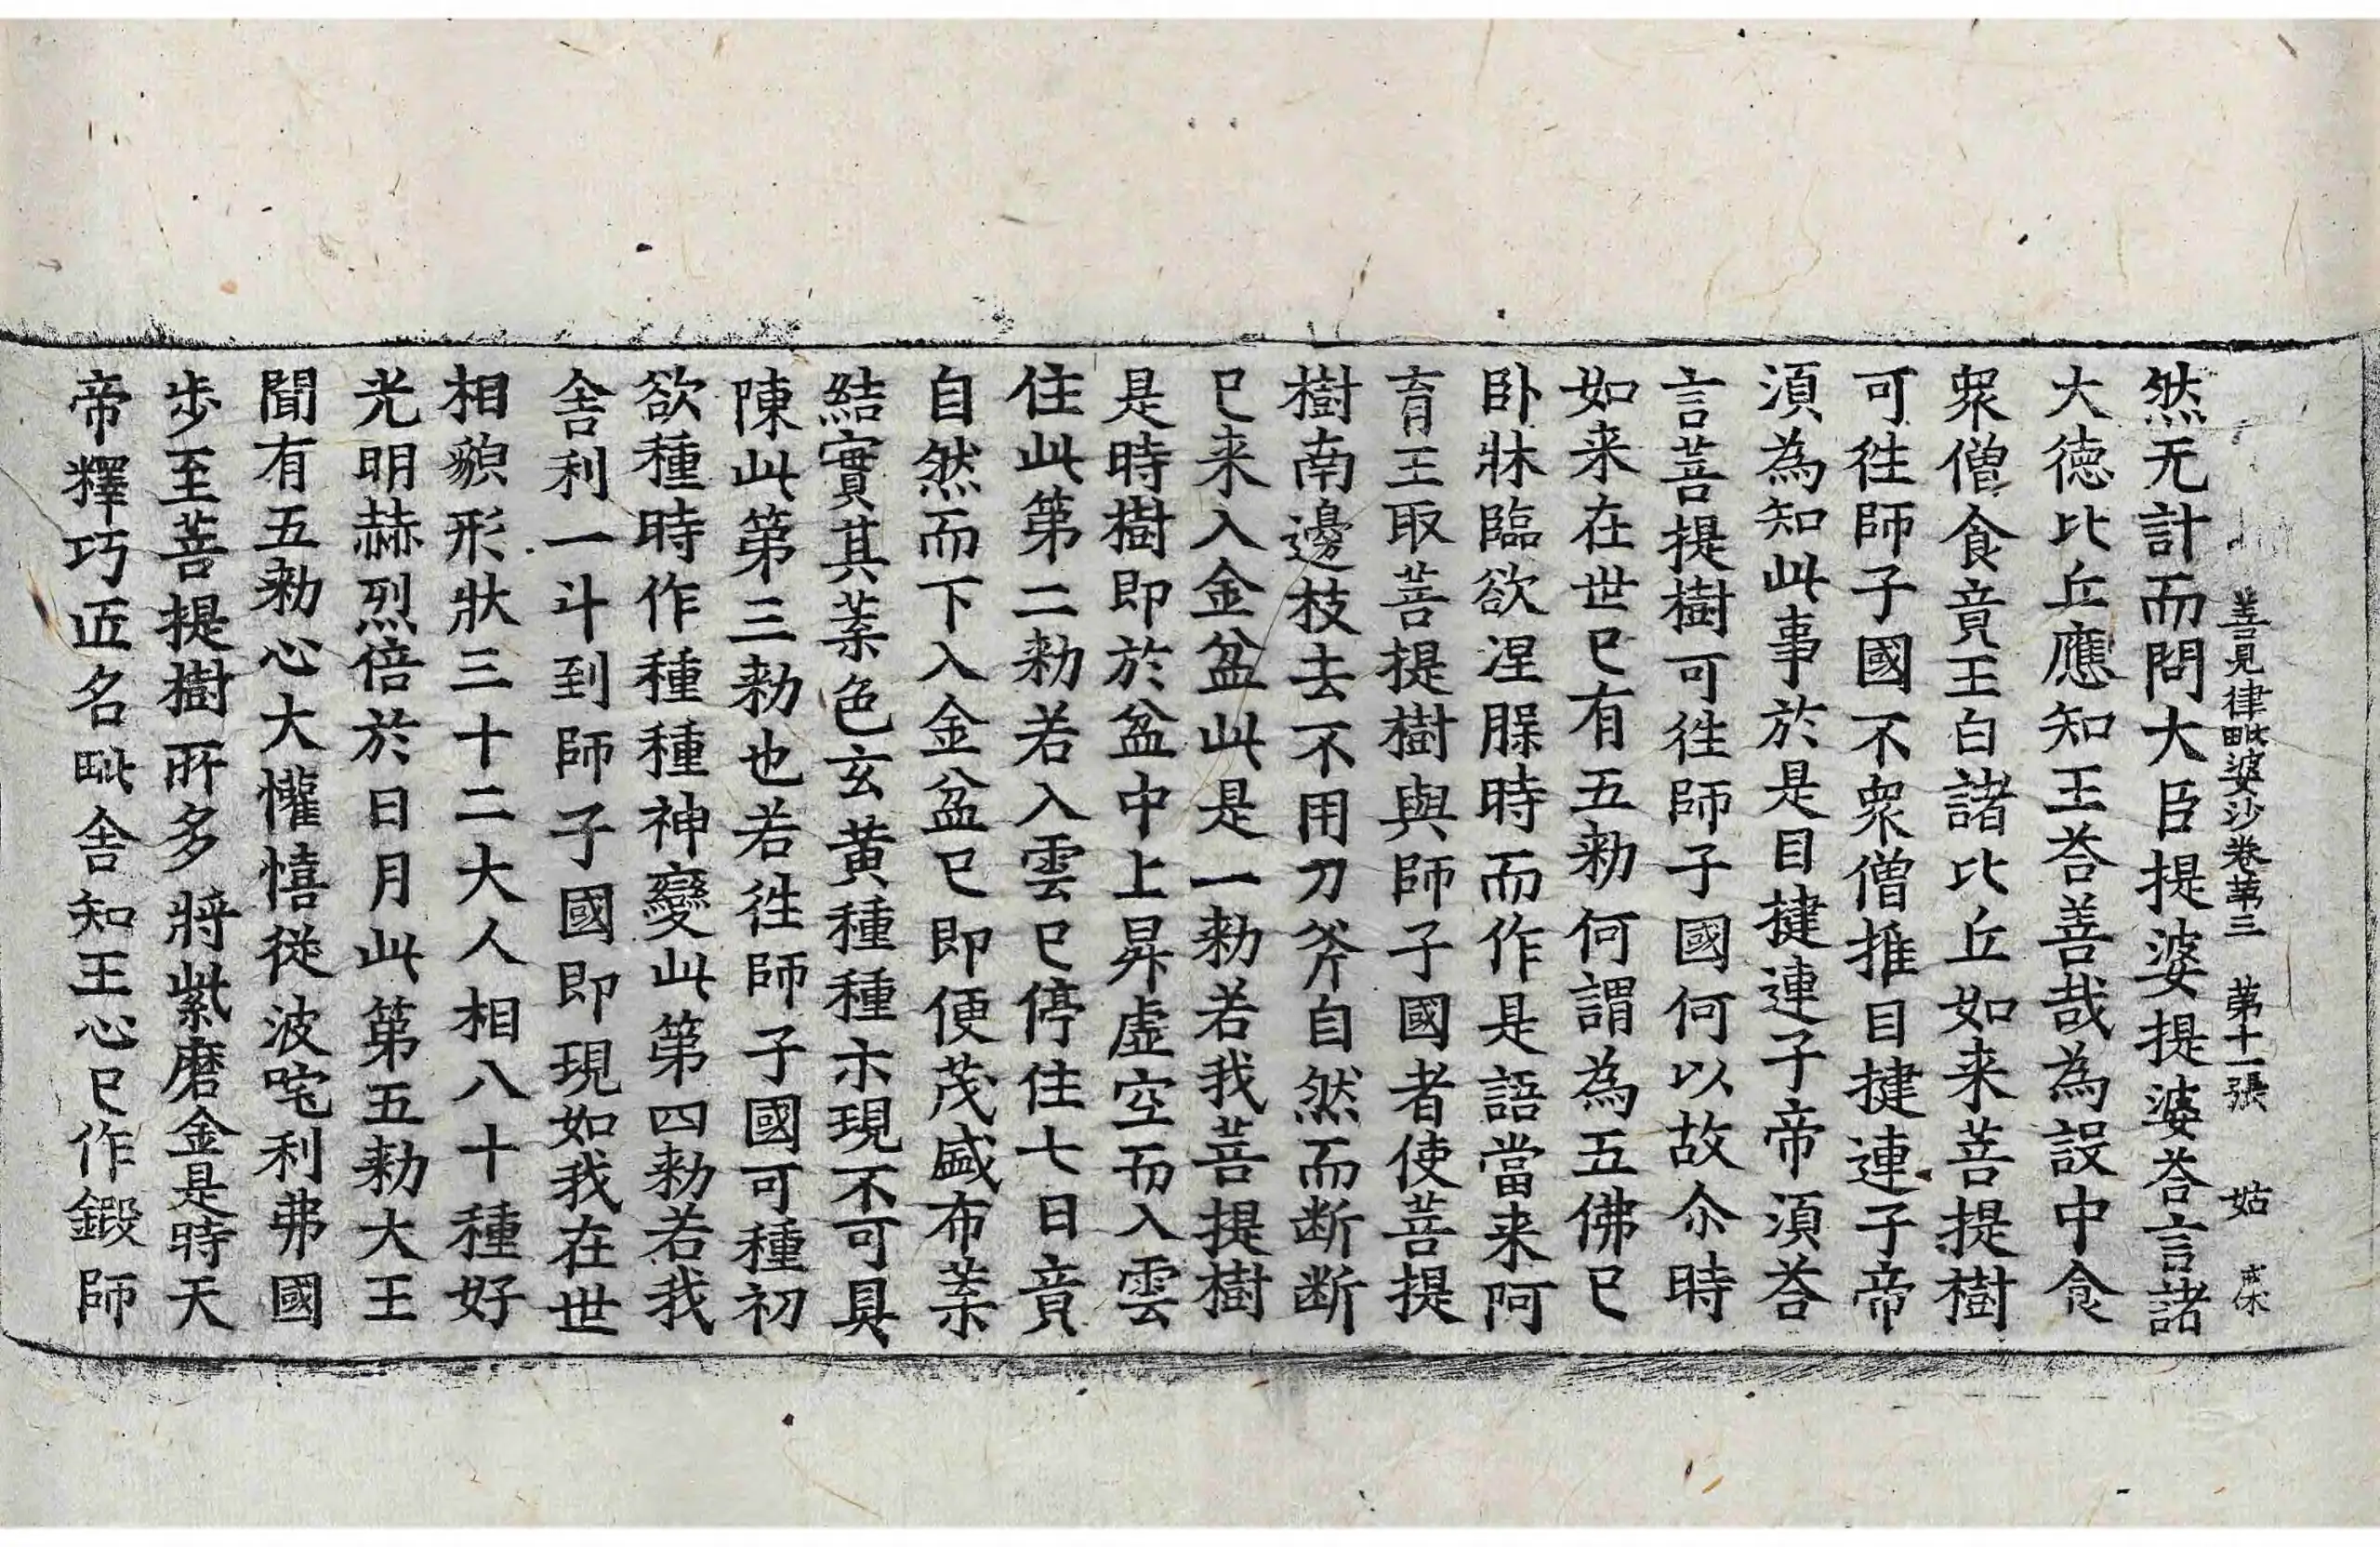 善見律毗婆沙卷第三 第十一張 姑 戒休
然无計而問大臣提婆提婆荅言諸
大德比丘應知王荅善哉為設中食
衆僧食竟王白諸比丘如来菩提樹
可徃師子國不衆僧推目揵連子帝
湏為知此事於是目揵連子帝湏荅
言菩提樹可徃師子國何以故尒時
如来在世已有五勑何謂為五佛已
卧牀臨欲涅腂時而作是語當来阿
育王取菩提樹與師子國者使菩提
樹南邊枝去不用刀斧自然而断断
已来入金盆此是一勑若我菩提樹
是時樹即於盆中上昇虛空而入雲
住此第二勑若入雲已停住七日竟
自然而下入金盆已即便茂盛布葉
結實其葉色玄黄種種示現不可具
陳此第三勑也若徃師子國可種初
欲種時作種種神變此第四勑若我
舍利一斗到師子國即現如我在世
相貌形狀三十二大人相八十種好
光明赫烈倍於日月此第五勑大王
聞有五勑心大懽憘從波咤利弗國
步至菩提樹所多將紫磨金是時天
帝釋巧匠名毗舍知王心已作鍛師